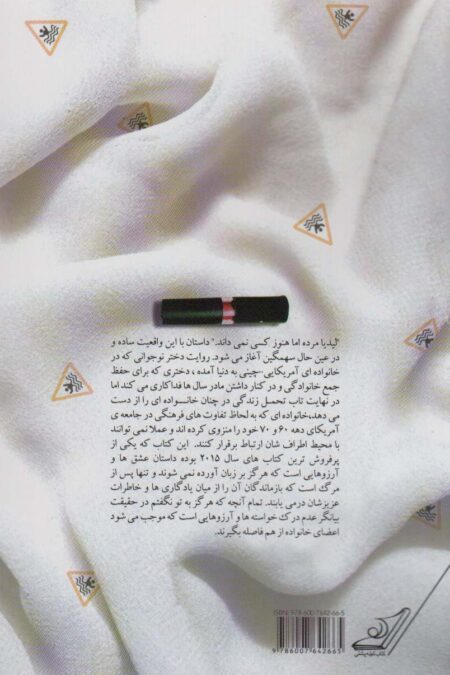 "لیدیا مرده اما هنوز کسی نمی داند." داستان با این واقعیت ساده و
در عین حال سهمگین آغاز می شود. روایت دختر نوجوانی که در
خانواده ای آمریکایی-چینی به دنیا آمده، دختری که برای حفظ
جمع خانوادگی و در کنار داشتن مادر سال ها فداکاری می کند اما
در نهایت تاب تحمل زندگی در چنان خانواده ای را از دست می
دهد، خانواده ای که به لحاظ تفاوت های فرهنگی در جامعه ی
آمریکای دهه ۶۰ و ۷۰ خود را منزوی کرده اند و عملا نمی توانند
با محیط اطراف شان ارتباط برقرار کنند. این کتاب که یکی از
پرفروش ترین کتاب های سال ۲۰۱۵ بوده داستان عشق ها و
آرزوهایی است که هرگز بر زبان آورده نمی شوند و تنها پس از
مرگ است که بازماندگان آن را از میان یادگاری ها و خاطرات
عزیزشان درمی یابند. تمام آنچه که هرگز به تو نگفتم در حقیقت
بیانگر عدم درک خواسته ها و آرزوهایی است که موجب می شود
اعضای خانواده از هم فاصله بگیرند.
ISBN: 978-600-7642-66-5
9 786007 642665